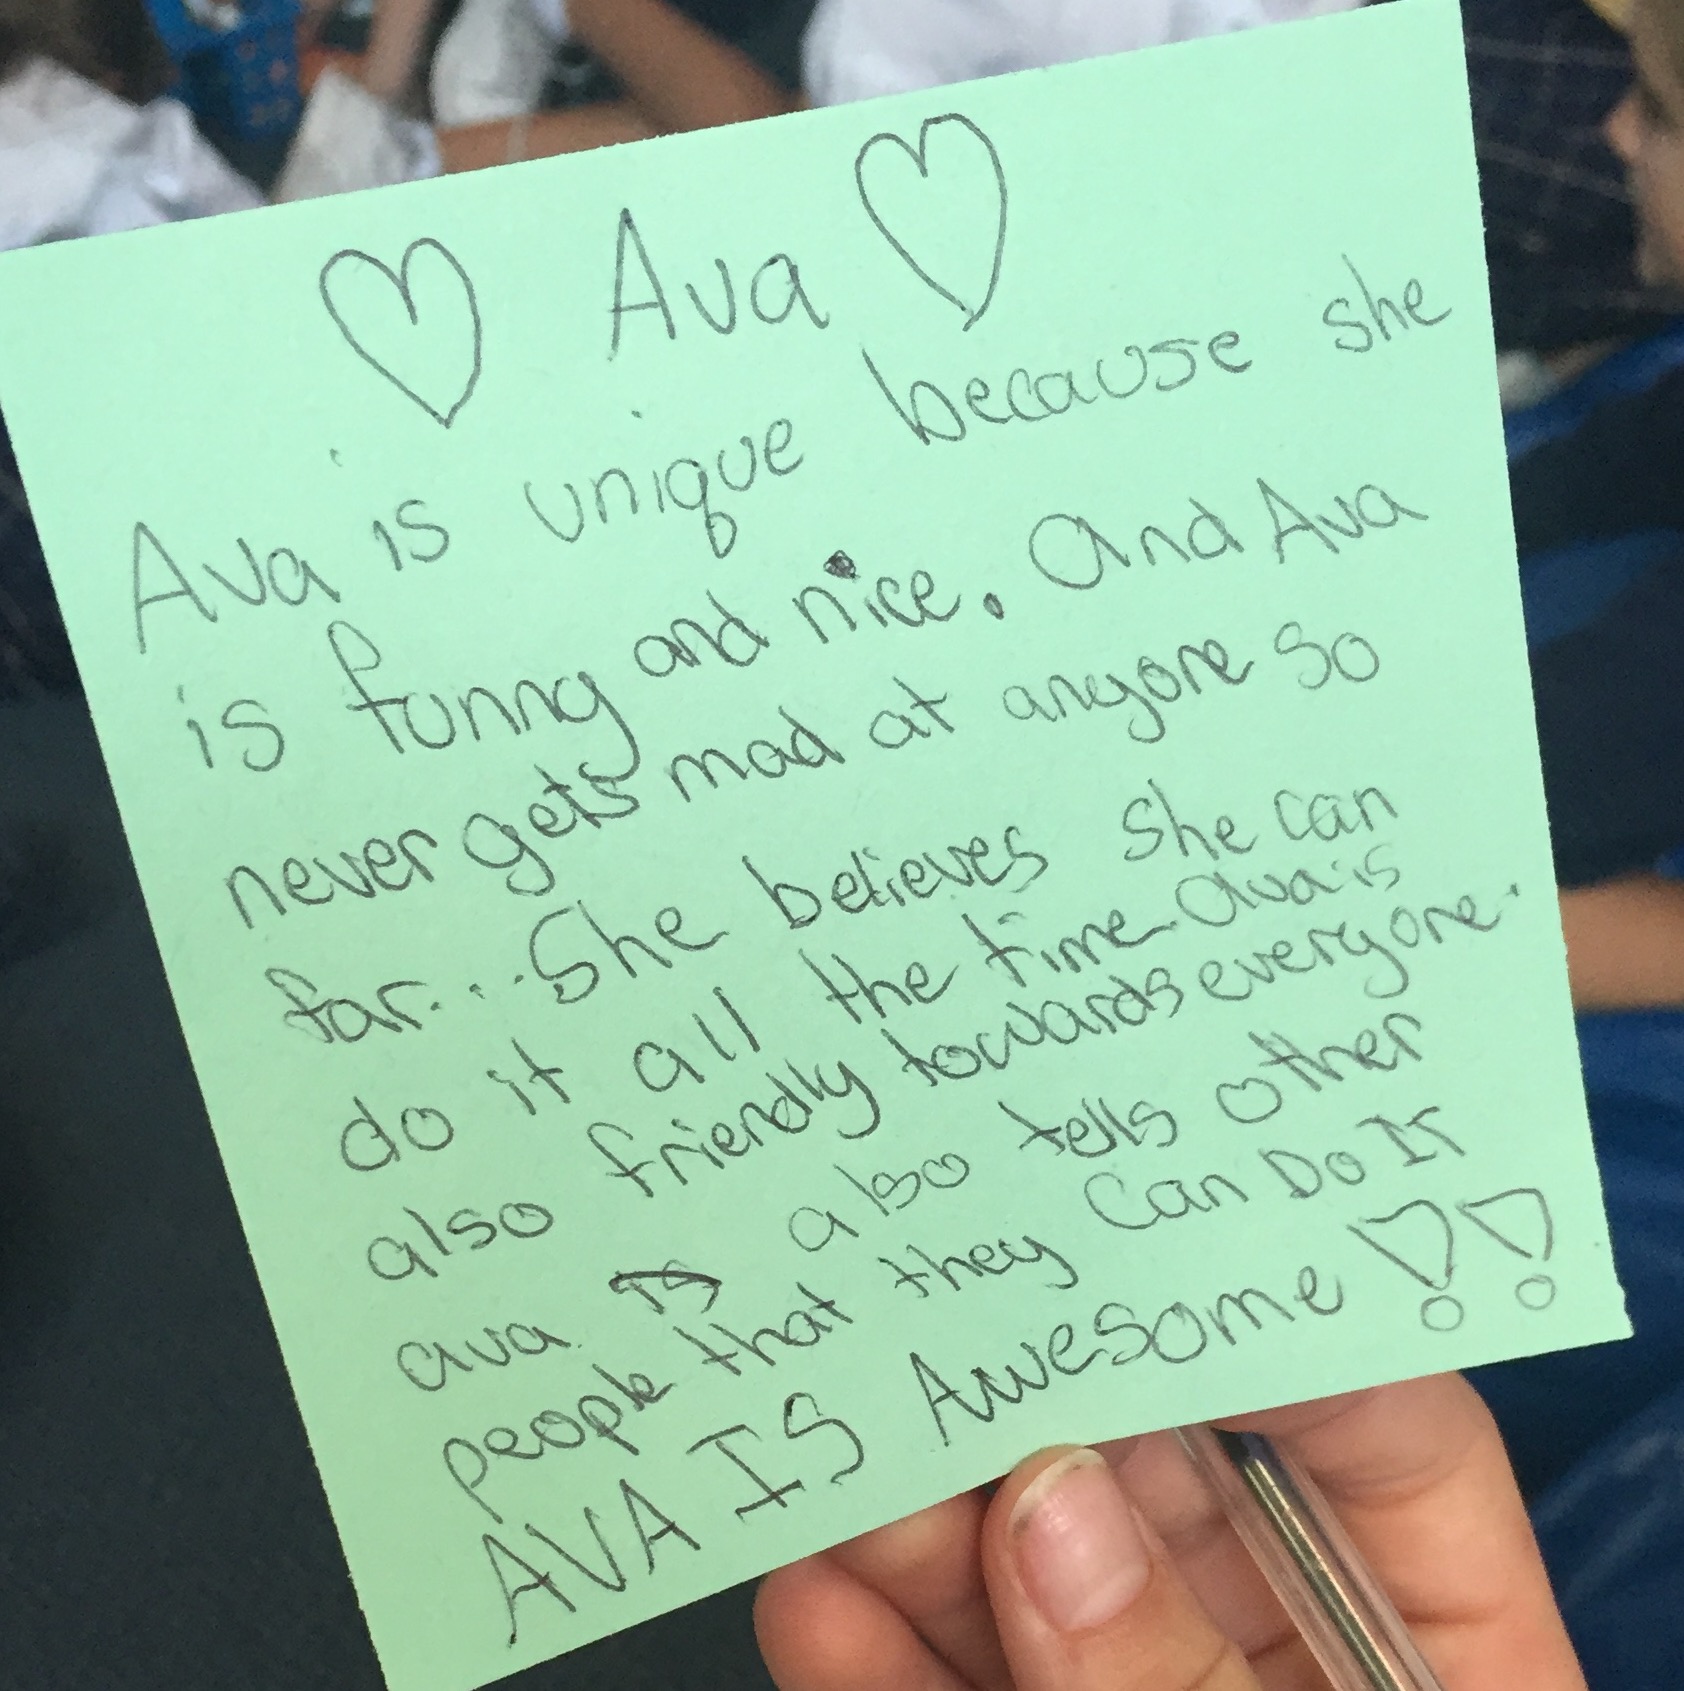 ♡ Ava ♡
Ava is unique because she
is funny and nice. And Ava
never gets mad at anyone so
far... She believes she can
do it all the time. Ava is
also friendly towards everyone.
ava is also tells other
people that they Can Do It
AVA IS Awesome !!